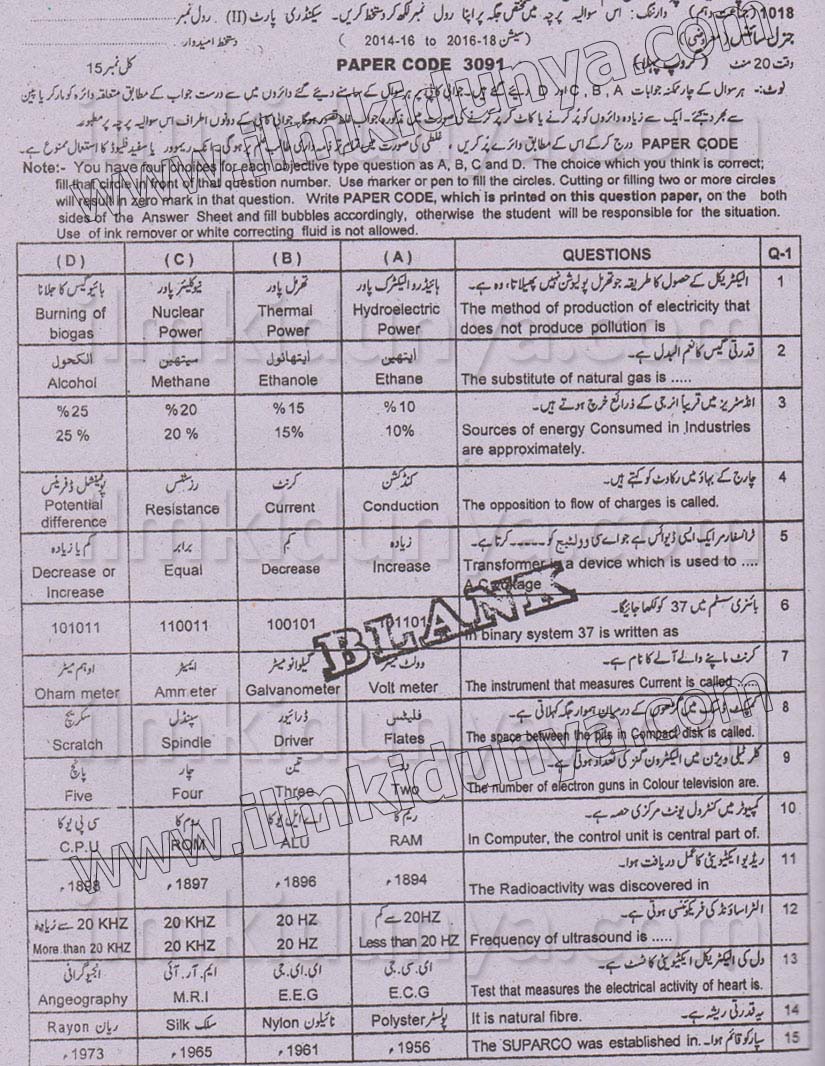 1018 (جماعت دہم) وارننگ: اس سوالیہ پرچہ میں مختص جگہ پر اپنا رول نمبر لکھ کر دستخط کریں۔ سیکنڈری پارٹ (II) رول نمبر
جنرل سائنس (معروضی) (سیشن 18-2016 to 2014-16) دستخط امیدوار
وقت 20 منٹ (گروپ پہلا) PAPER CODE 3091 کل نمبر 15
نوٹ:- ہر سوال کے چار ممکنہ جوابات A ,B ,C اور D دیئے گئے ہیں۔ جوابی کاپی پر ہر سوال کے سامنے دیئے گئے دائروں میں سے درست جواب کے مطابق متعلقہ دائرہ کو مارکر یا پین
سے بھر دیجئے۔ ایک سے زیادہ دائروں کو پُر کرنے یا کاٹ کر پُر کرنے کی صورت میں مذکورہ جواب غلط تصور ہوگا۔ جوابی کاپی کے دونوں اطراف اس سوالیہ پرچہ پر مطبوعہ
PAPER CODE درج کر کے اس کے مطابق دائرے پُر کریں، غلطی کی صورت میں تمام تر ذمہ داری طالب علم پر ہوگی۔ انک ریموور یا سفید فلیوڈ کا استعمال ممنوع ہے۔
Note:- You have four choices for each objective type question as A, B, C and D. The choice which you think is correct;
fill that circle in front of that question number. Use marker or pen to fill the circles. Cutting or filling two or more circles
will result in zero mark in that question. Write PAPER CODE, which is printed on this question paper, on the both
sides of the Answer Sheet and fill bubbles accordingly, otherwise the student will be responsible for the situation.
Use of ink remover or white correcting fluid is not allowed.
(D) (C) (B) (A) QUESTIONS Q-1
بائیوگیس کا جلانا نیوکلیئر پاور تھرمل پاور ہائیڈرو الیکٹرک پاور الیکٹریکل کے حصول کا طریقہ جو تھرمل پولیوشن نہیں پھیلاتا، وہ ہے۔ 1
Burning of Nuclear Thermal Hydroelectric The method of production of electricity that
biogas Power Power Power does not produce pollution is
الکحول میتھین ایتھانول ایتھین قدرتی گیس کا نعم البدل ہے۔ 2
Alcohol Methane Ethanole Ethane The substitute of natural gas is .....
%25 %20 %15 %10 انڈسٹریز میں تقریباً انرجی کے ذرائع خرچ ہوتے ہیں۔ 3
25 % 20 % 15% 10% Sources of energy Consumed in Industries
are approximately.
پوٹینشل ڈفرینس رزسٹنس کرنٹ کنڈکشن چارج کے بہاؤ میں رکاوٹ کو کہتے ہیں۔ 4
Potential difference Resistance Current Conduction The opposition to flow of charges is called.
کم یا زیادہ برابر کم زیادہ ٹرانسفارمر ایک ایسی ڈیوائس ہے جو اے سی وولٹیج کو ------ کرتا ہے۔ 5
Decrease or Equal Decrease Increase Transformer is a device which is used to ....
Increase A.C voltage
101011 110011 100101 101101 بائنری سسٹم میں 37 کو لکھا جائیگا۔ 6
In binary system 37 is written as
اوہم میٹر ایمیٹر گیلوانومیٹر وولٹ میٹر کرنٹ ماپنے والے آلے کا نام ہے۔ 7
Oham meter Amn eter Galvanometer Volt meter The instrument that measures Current is called
سکریچ سپنڈل ڈرائیور فلیٹس کمپیکٹ ڈسک میں گڑھوں کے درمیان ہموار جگہ کہلاتی ہے۔ 8
Scratch Spindle Driver Flates The space between the pits in Compact disk is called.
پانچ چار تین دو کلر ٹیلی ویژن میں الیکٹرون گنز کی تعداد ہوتی ہے۔ 9
Five Four Three Two The number of electron guns in Colour television are.
سی پی یو کا روم کا اے ایل یو کا ریم کا کمپیوٹر میں کنٹرول یونٹ مرکزی حصہ ہے۔ 10
C.P.U ROM ALU RAM In Computer, the control unit is central part of.
1898ء 1897ء 1896ء 1894ء ریڈیو ایکٹیویٹی کا عمل دریافت ہوا۔ 11
The Radioactivity was discovered in
20 KHZ سے زیادہ 20 KHZ 20 HZ 20HZ سے کم الٹراساؤنڈ کی فریکوئنسی ہوتی ہے۔ 12
More than 20 KHZ 20 KHZ 20 HZ Less than 20 HZ Frequency of ultrasound is .....
انجیوگرافی ایم۔آر۔آئی ای۔ای۔جی ای۔سی۔جی دل کی الیکٹریکل ایکٹیویٹی کا ٹسٹ ہے۔ 13
Angeography M.R.I E.E.G E.C.G Test that measures the electrical activity of heart is.
Rayon ریان Silk سلک Nylon نائیلون Polyster پولسٹر It is natural fibre. یہ قدرتی ریشہ ہے۔ 14
1973ء 1965ء 1961ء 1956ء The SUPARCO was established in. سپارکو قائم ہوا۔ 15
BLANK
www.ilmkidunya.com
www.ilmkidunya.com
ilmkidunya.com